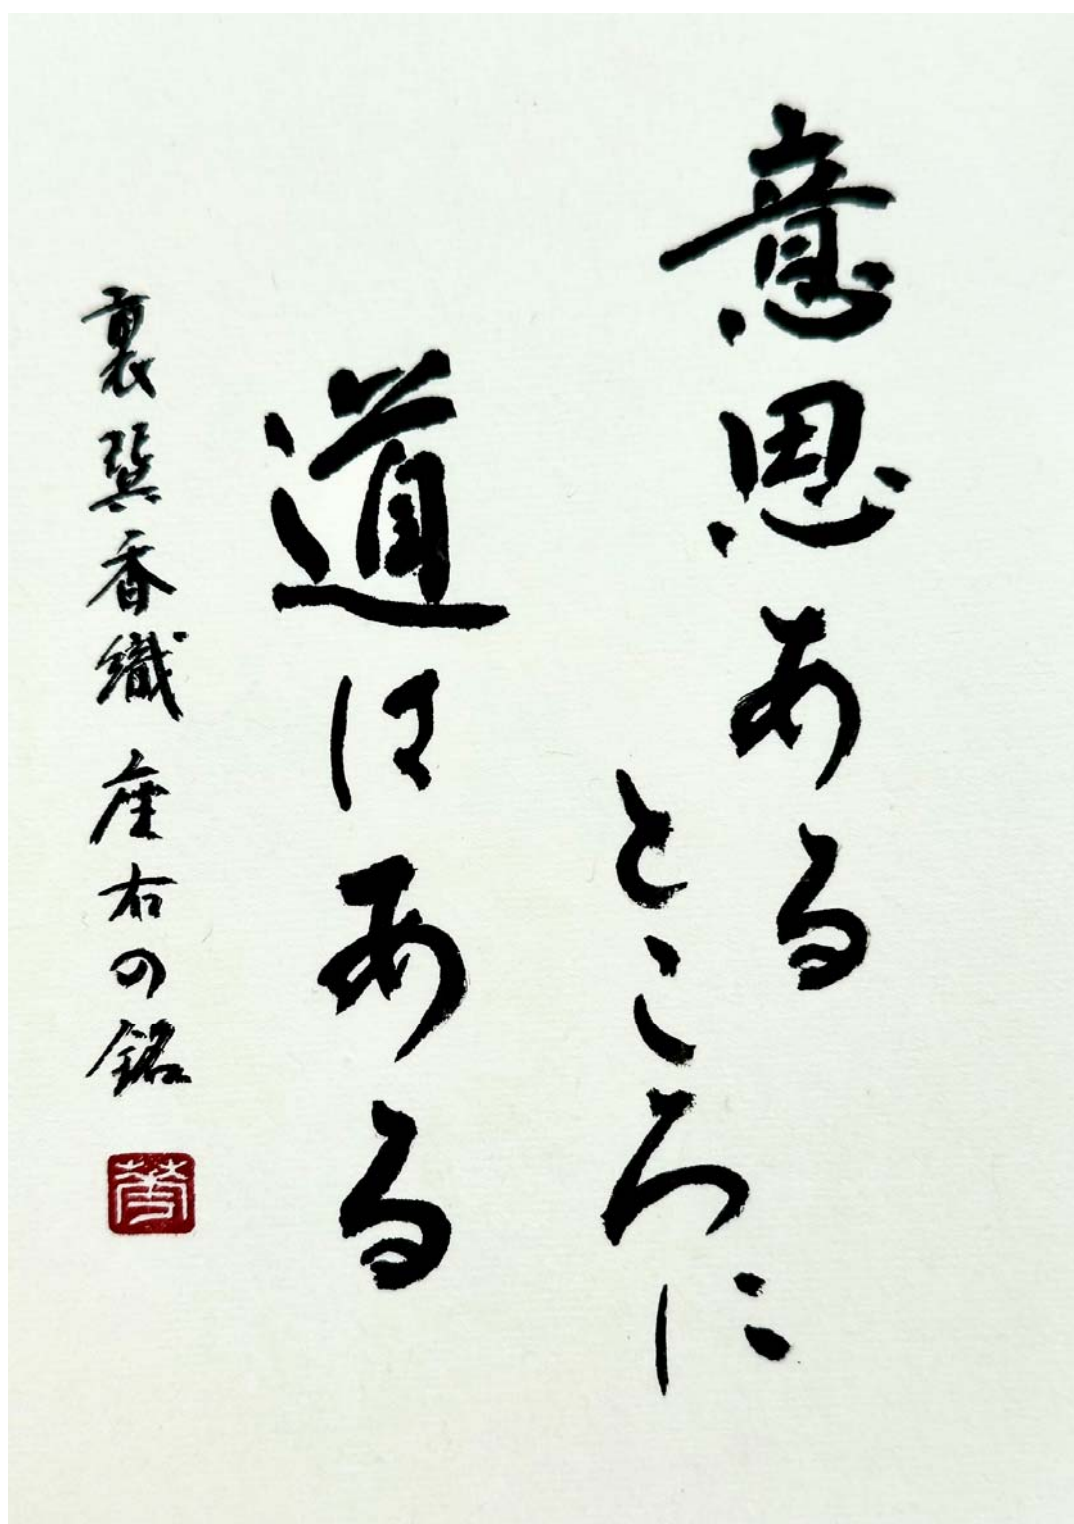 意思ある
ところに
道はある
裏巽香織 座右の銘